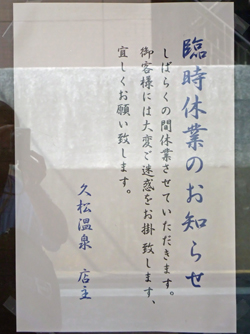 臨時休業のお知らせ
しばらくの間休業させていただきます。
御客様には大変ご迷惑をお掛致します、
宜しくお願い致します。
久松温泉 店主